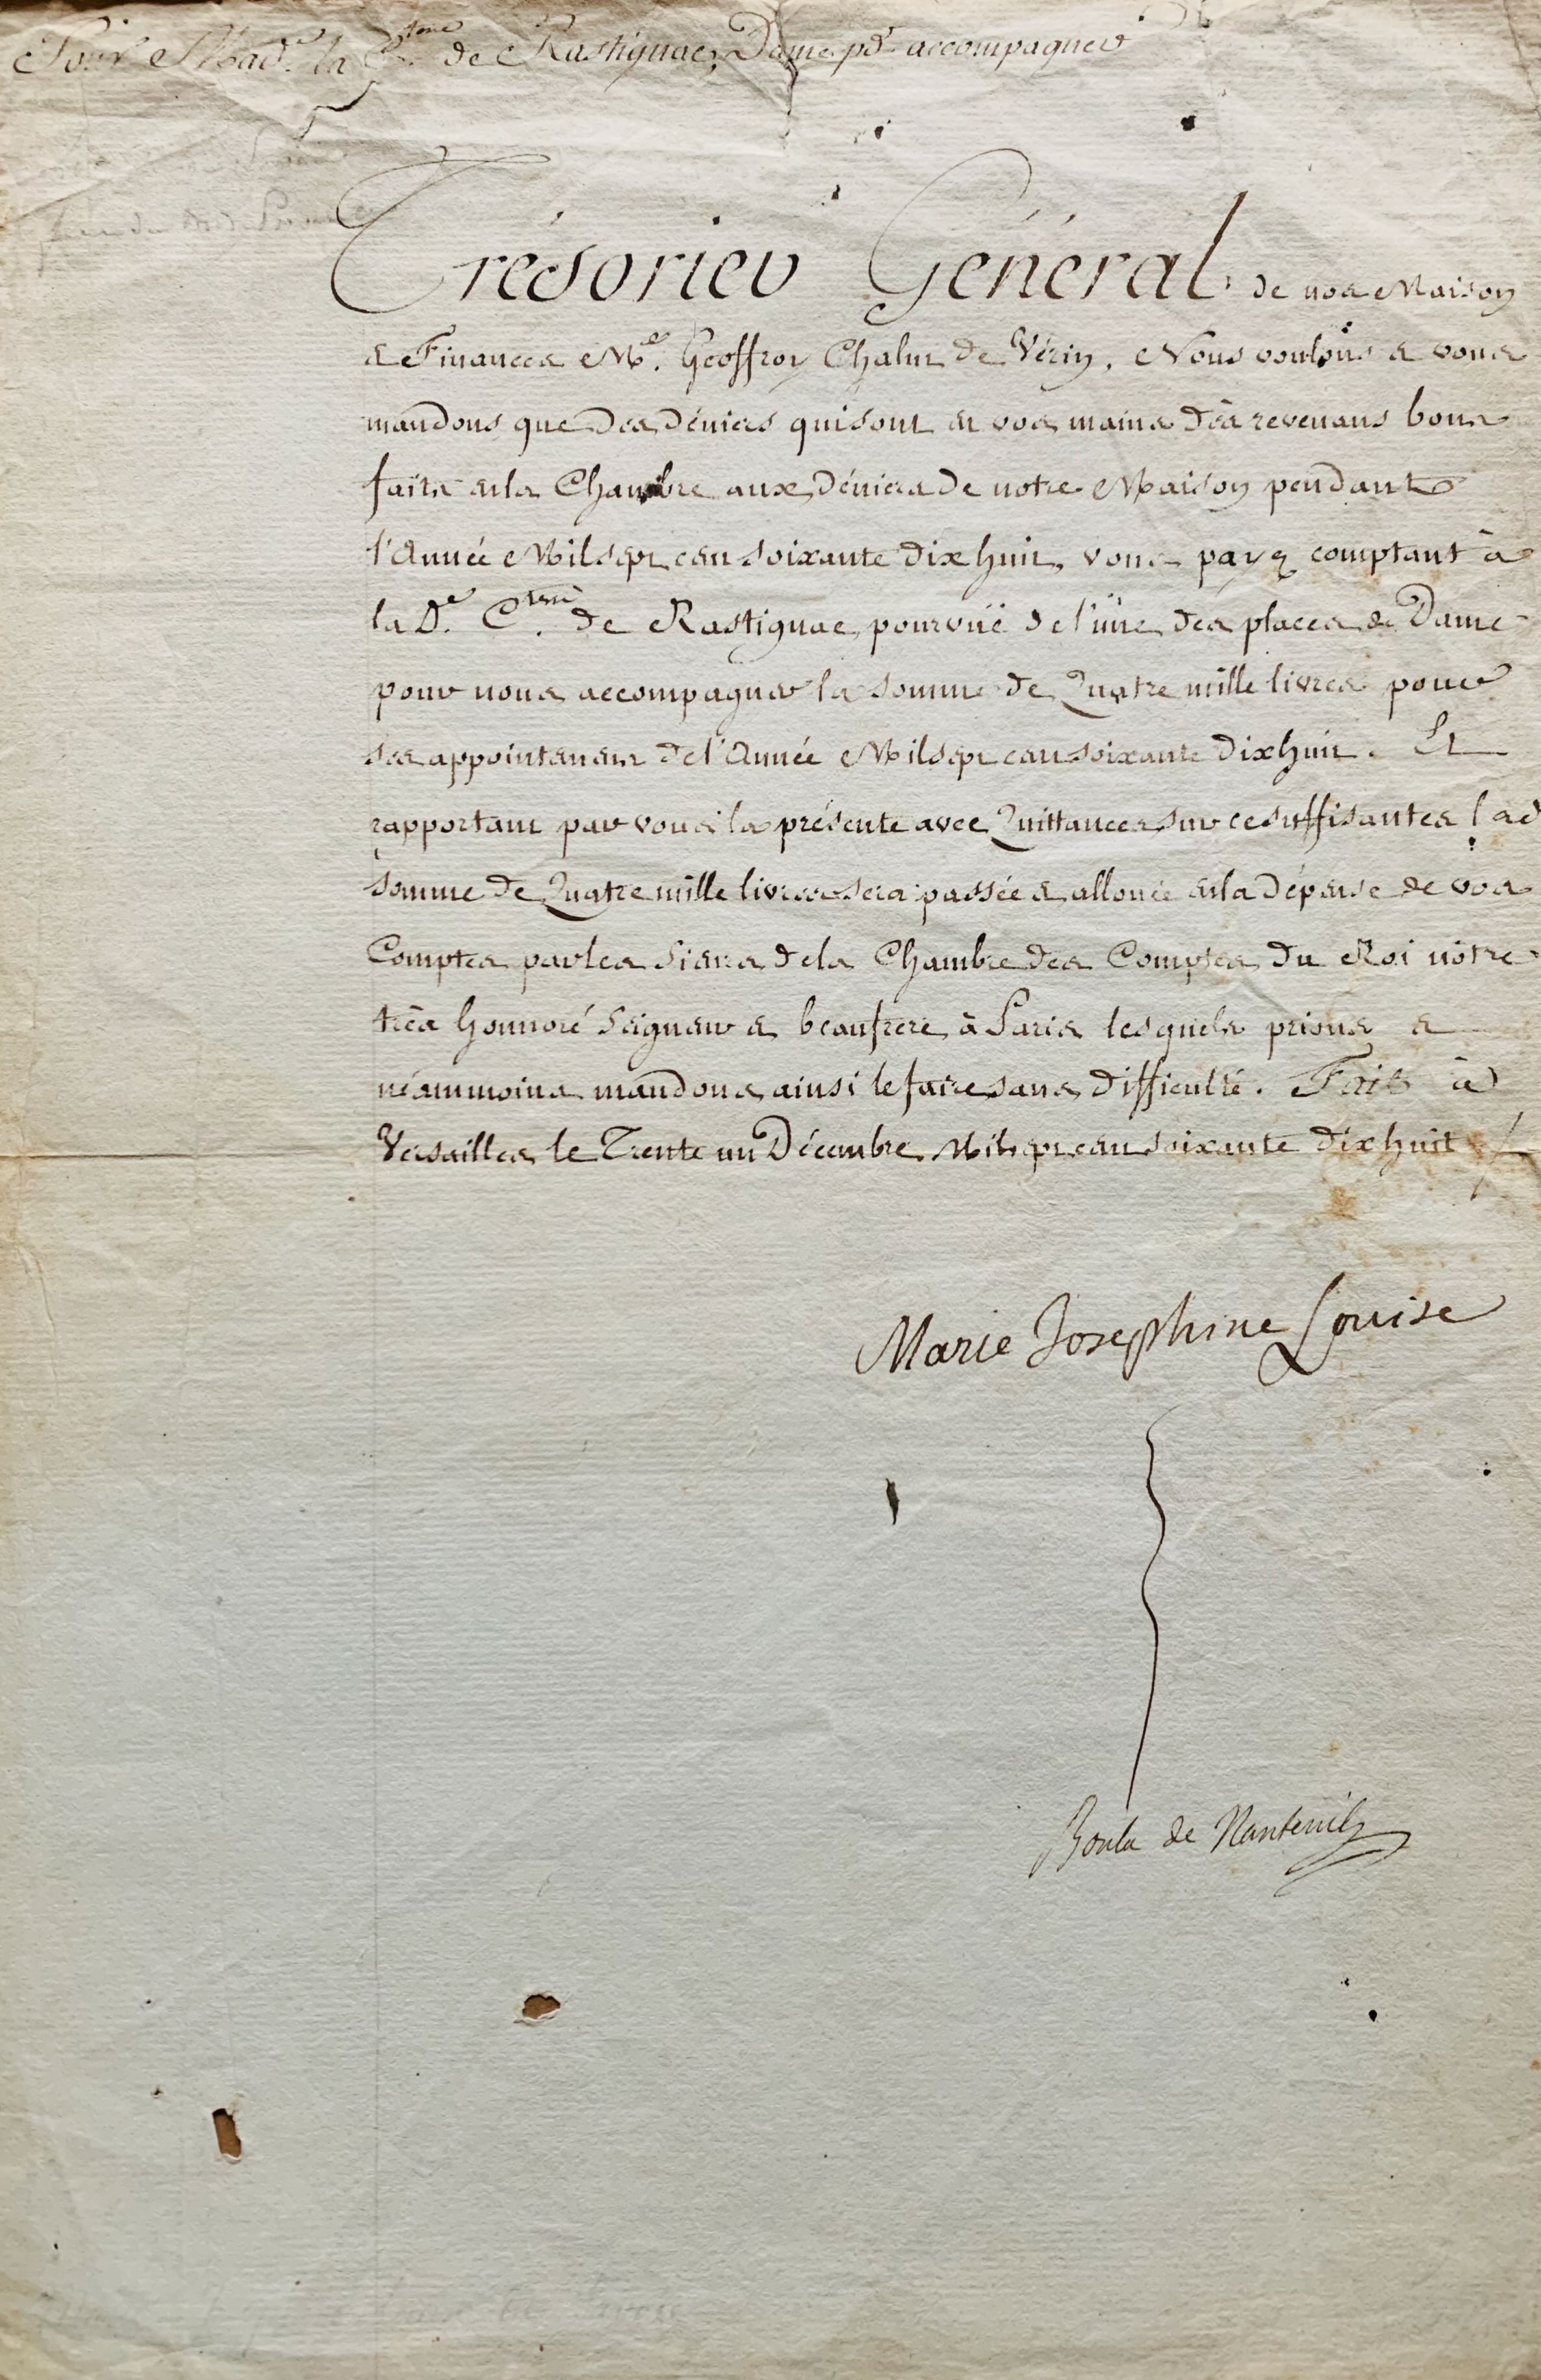 Pour Mad.e la C.tesse de Rastignac, Dame pr accompagner
Trésorier Général de nos Maison
et Finances Me. Geoffroy Chalut de Vérin. Nous voulons et vous
mandons que des déniers qui sont en vos mains des revenans bons
faits en la Chambre aux déniers de notre Maison pendant
l'Année Mil sept cent soixante dix huit, vous payez comptant à
la De. C.tesse de Rastignac, pourvuë de l'une des places de Dame
pour nous accompagner la somme de Quatre mille livres pour
ses appointemens de l'Année Mil sept cent soixante dix huit. Et
rapportant par vous la présente avec Quittances sur ce suffisantes lad
somme de Quatre mille livres sera passée et allouée en la dépense de vos
Comptes par les Gens de la Chambre des Comptes du Roi nôtre
très honnoré Seigneur et beaufrere à Paris lesquels prions et
néammoins mandons ainsi le faire sans difficulté. Fait à
Versailles le Trente un Décembre Mil sept cent soixante dix huit
Marie Josephine Louise
Boula de Nanteuil